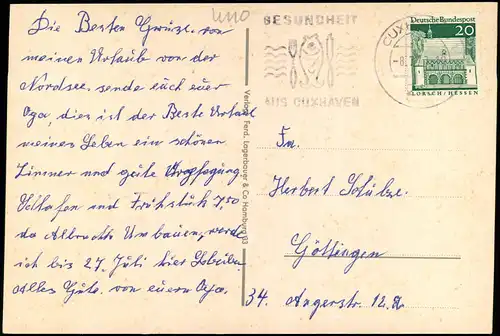 Die Besten Grüße von
meinen Urlaub von der
Nordsee. sende euch euer
Opa, dies ist der Beste Urlaub
meines Leben ein schönen
Zimmer und gute Verpflegung
Schlafen und Frühstück 7,50
da Albrechts Umbauen, werde
ich bis 27. Juli hier bleiben
Alles Gute. von euern Opa.
GESUNDHEIT
AUS CUXHAVEN
CUXH
Deutsche Bundespost
20
LORSCH/HESSEN
Verlag Ferd. Lagerbauer & Co Hamburg 33
Fn.
Herbert Schulze.
Göttingen
34. Angerstr. 12.